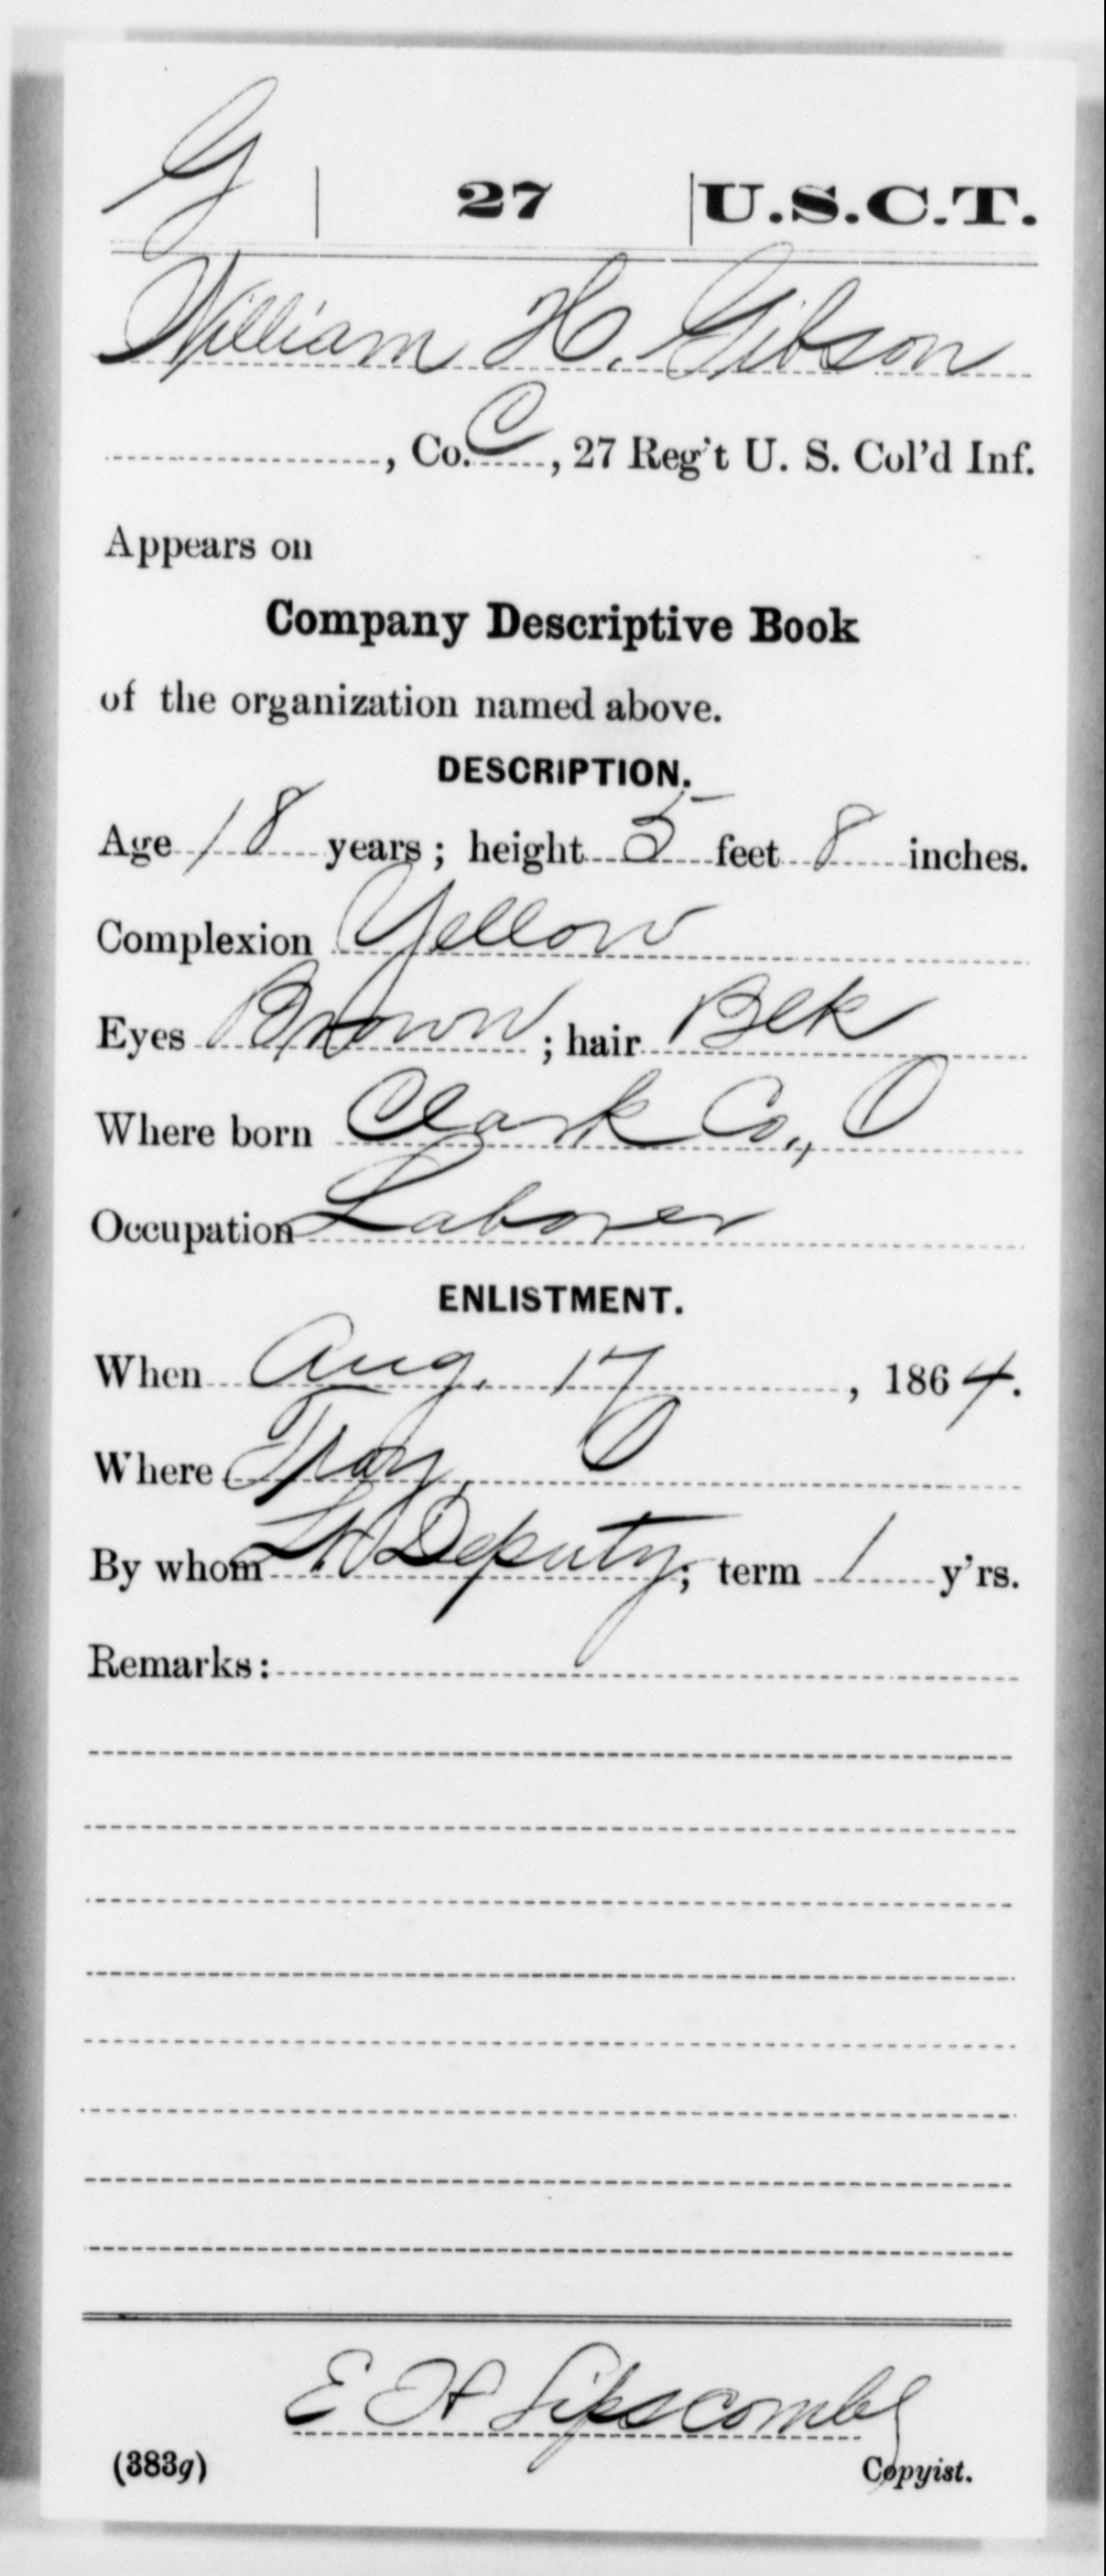 G | 27 | U.S.C.T.
William H. Gibson
, Co. C, 27 Reg't U. S. Col'd Inf.
Appears on
Company Descriptive Book
of the organization named above.
DESCRIPTION.
Age 18 years; height 5 feet 8 inches.
Complexion Yellow
Eyes Brown; hair Blk
Where born Clark Co., O
Occupation Laborer
ENLISTMENT.
When Aug. 17, 1864.
Where Troy, O
By whom Deputy; term 1 y'rs.
Remarks:
E H Lipscomb
(383g) Copyist.